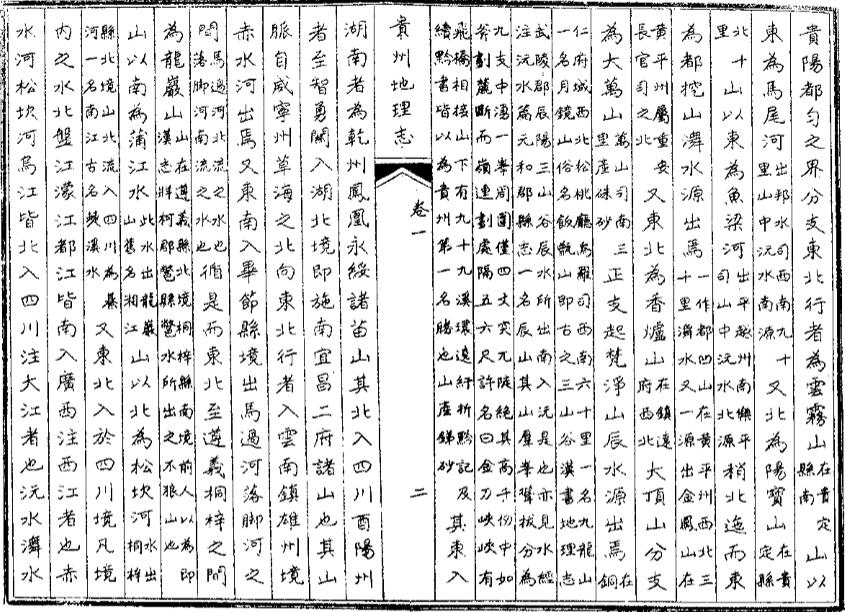 貴陽都勻之界分支東北行者為雲霧山在貴定縣南山以
東為馬尾河出邦水司西南九十里山中沅水南源又北為陽寶山在貴定縣
北十里山以東為魚梁河出平越州南樂平司山中沅水北源稍北迤而東
為都挖山㵲水源出焉一作都凹山在黃平州西北三十里㵲水又一源出金鳳山在
黃平州屬重安長官司之北又東北為香爐山在鎮遠府西北大頂山分支
為大萬山萬山司南三里產硃砂正支起梵淨山辰水源出焉在銅
仁府城西北松桃廳烏羅司西南六十里一名九龍山一名月鏡山俗名飯甑山即古之三山谷漢書地理志
武陵郡辰陽三山谷辰水所出南入沅是也亦見水經注沅水篇元和郡縣志一名辰山其山羣峯聳拔分為
九支中湧一峯周圍僅四丈突兀陡絕其高千仞中如斧劃麓斷而嶺連劃處隔五六尺許名曰金刀峽峽有
飛橋相接山下有九十九溪環遶紆折黔記及續黔書皆以為貴州第一名勝也山產銻砂其東入
貴州地理志
卷一
二
湖南者為乾州鳳凰永綏諸苗山其北入四川酉陽州
者至智勇關入湖北境即施南宜昌二府諸山也其山
脈自威寧州草海之北向東北行者入雲南鎮雄州境
赤水河出焉又東南入畢節縣境出馬過河落脚河之
間馬過河北流之水也落脚河南流之水也循是而東北至遵義桐梓之間
為龍巖山在遵義縣北境桐梓縣南境前人以為即漢志牂柯郡鄨縣鄨水所出之不狼山也
山以南為蒲江水此水出龍巖山舊名湘江山以北為松坎河水出桐梓
縣北境北流入四川為綦河一名南江古名僰溪水又東北入於四川境凡境
內之水北盤江濛江都江皆南入廣西注西江者也赤
水河松坎河烏江皆北入四川注大江者也沅水㵲水